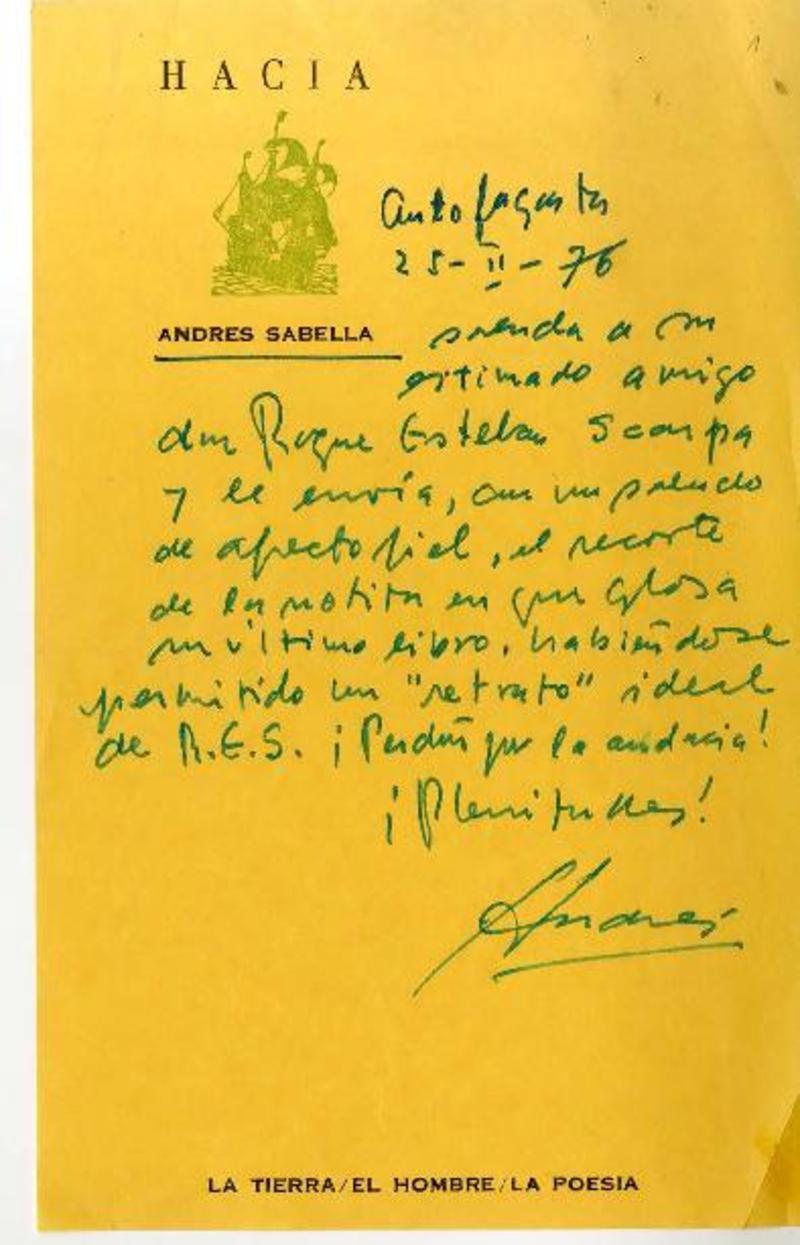 HACIA
Antofagasta
25-II-76
ANDRES SABELLA
saluda a su
estimado amigo
don Roque Esteban Scarpa
y le envía, con un saludo
de afecto fiel, el recorte
de la notita en que glosa
su último libro, habiéndose
permitido un "retrato" ideal
de R.E.S. ¡Perdón por la audacia!
¡Plenitudes!
Andrés
LA TIERRA/EL HOMBRE/LA POESIA